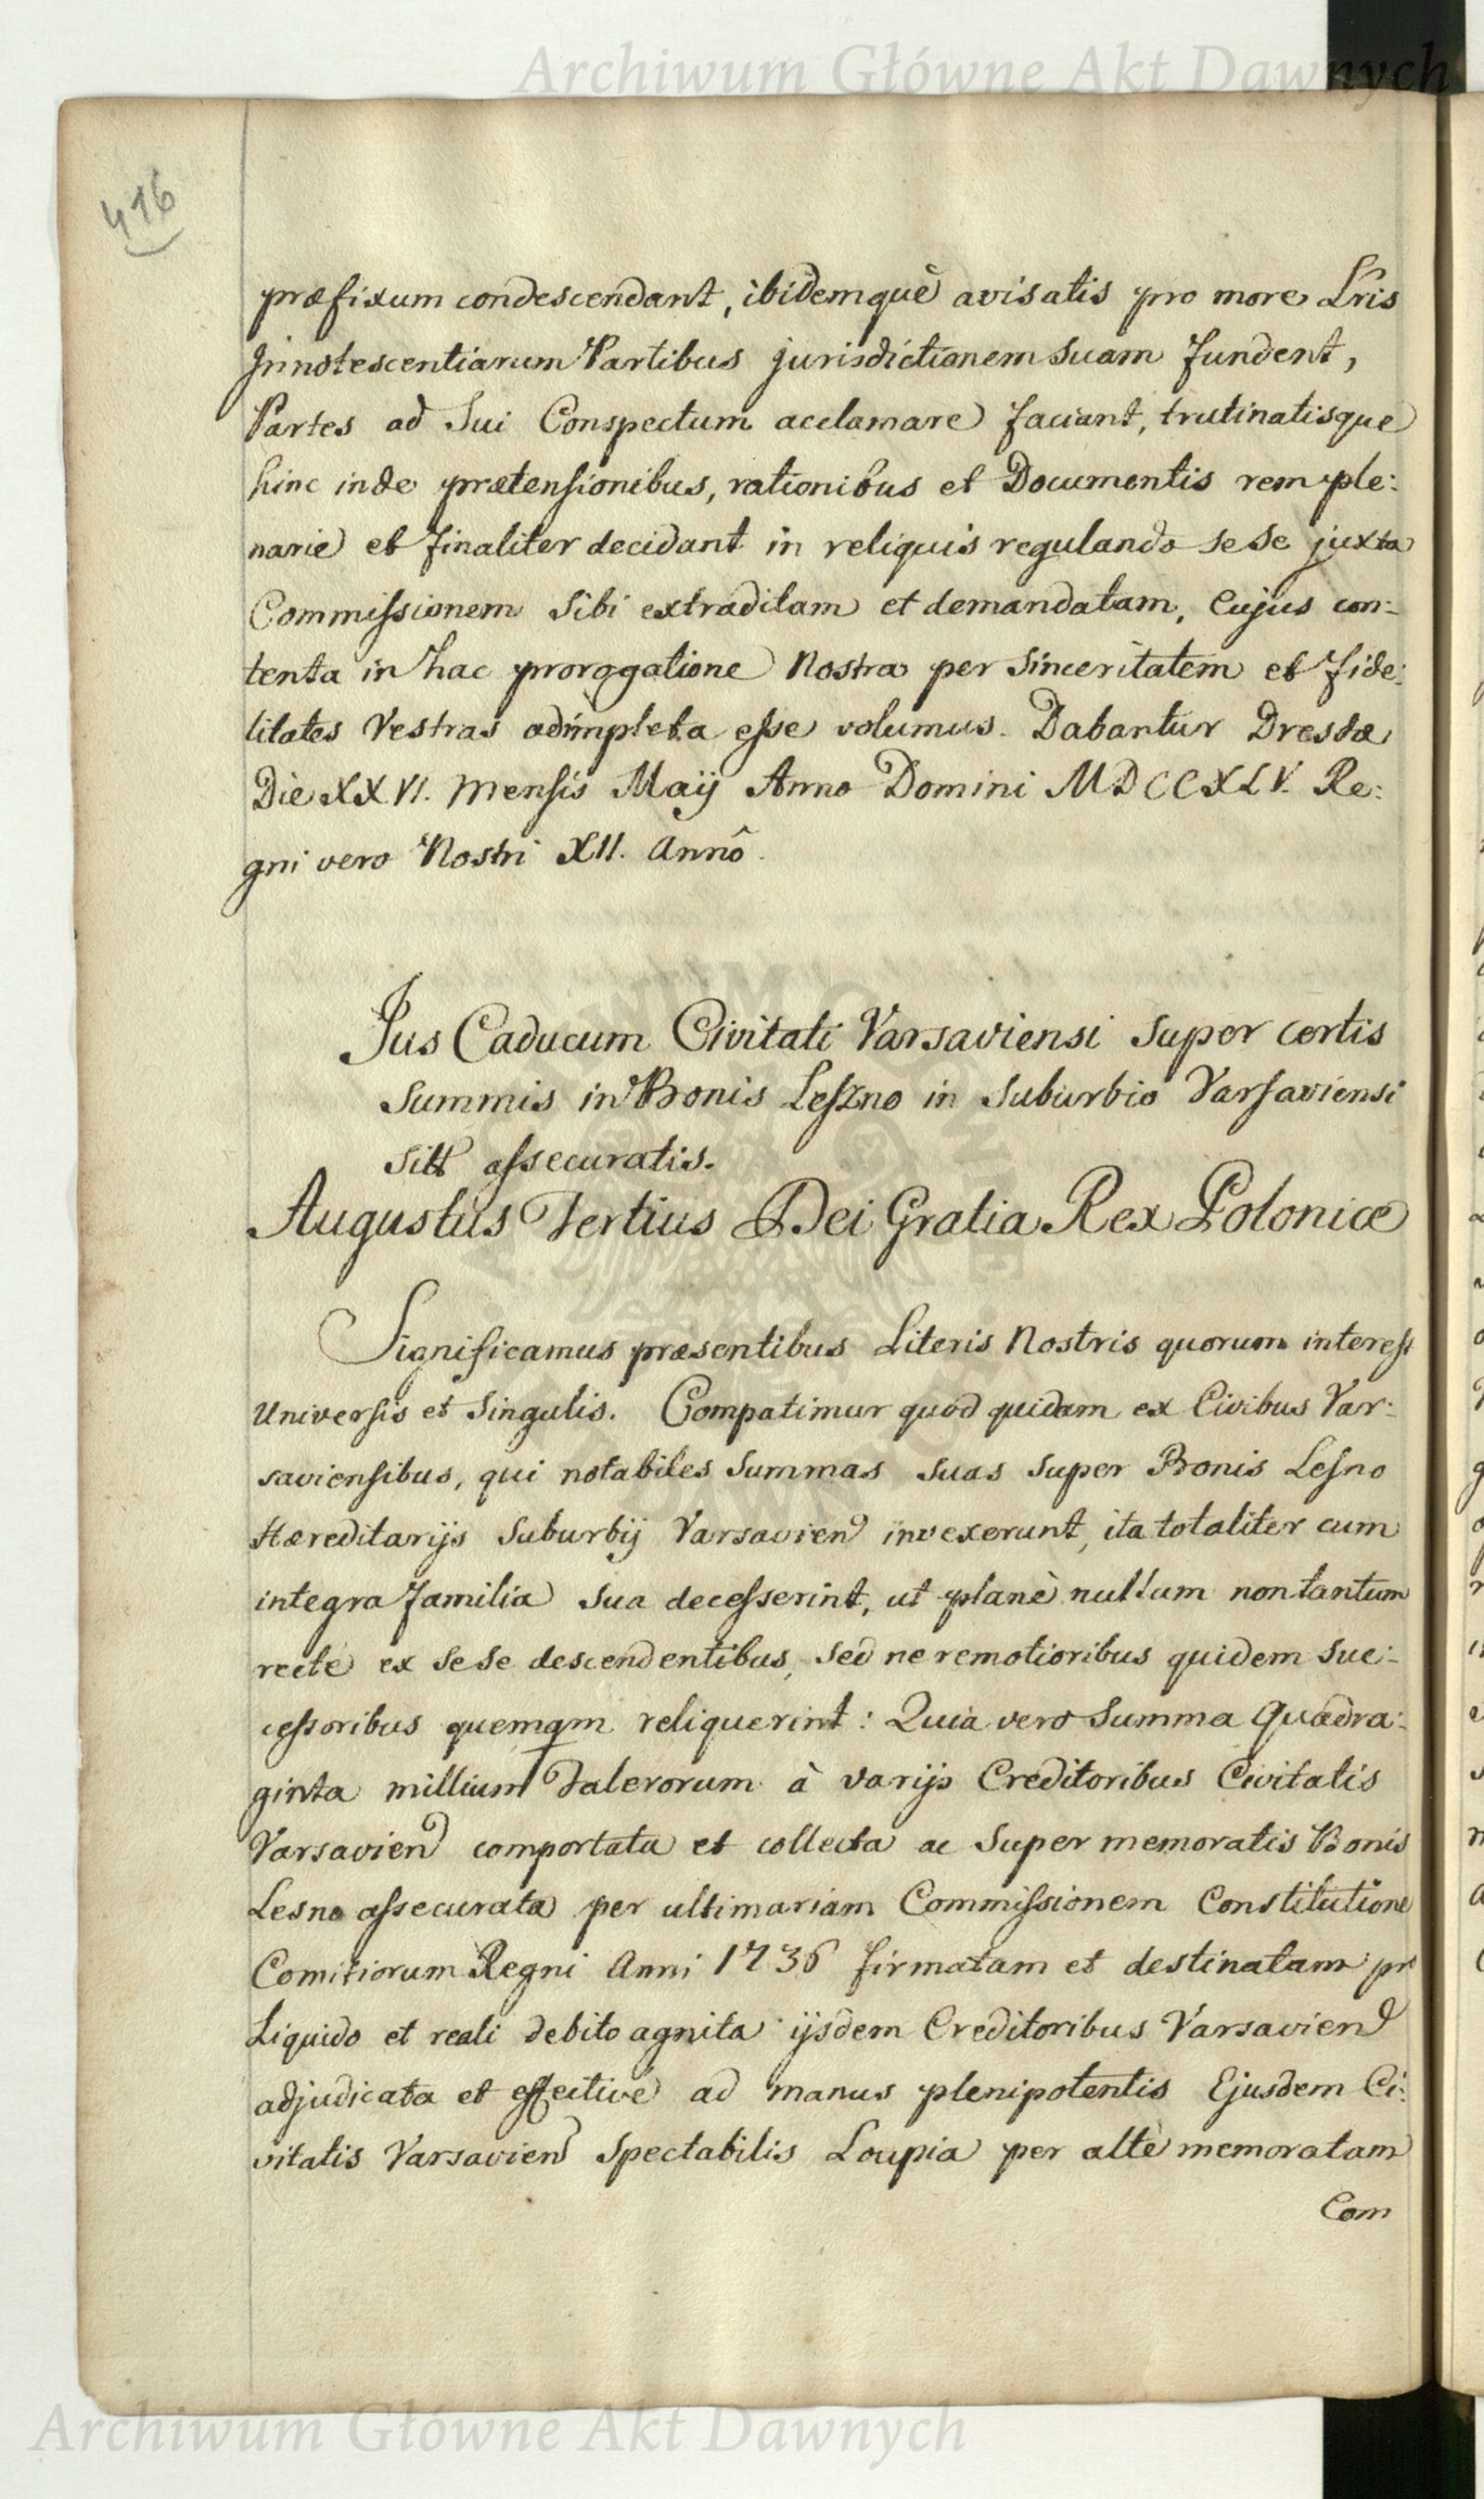 Archiwum Główne Akt Dawnych
416
præfixum condescendant, ibidemquè avisatis pro more Lris
Innotescentiarum Partibus jurisdictionem suam fundent,
Partes ad sui Conspectum acclamare faciant, trutinatisque
hinc inde prætensionibus, rationibus et Documentis rem ple:
narie et finaliter decidant in reliquis regulando sese juxta
Commissionem sibi extraditam et demandatam, Cujus con:
tenta in hac prorogatione Nostra per sinceritatem et fide:
litates Vestras adimpleta esse volumus. Dabantur Dresdæ
Die XXVI. Mensis Maij Anno Domini MDCCXLV. Re:
gni vero Nostri XII. Annô.
Jus Caducum Civitati Varsaviensi super certis
Summis in Bonis Leszno in Suburbio Varsaviensi
sitt assecuratis.
Augustus Tertius Dei Gratia Rex Poloniæ
Significamus præsentibus Literis Nostris quorum interest
Universis et Singulis. Compatimur quòd quidam ex Civibus Var:
saviensibus, qui notabiles Summas suas super Bonis Lesno
Hæreditarijs Suburbij Varsavien invexerunt, ita totaliter cum
integra familia sua decesserint, ut planè nullum non tantum
recte ex sese descendentibus, sed ne remotioribus quidem suc:
cessoribus quemqm reliquerint: Quia vero Summa Quadra:
ginta millium Talerorum à varijs Creditoribus Civitatis
Varsavien comportata et collecta ac super memoratis Bonis
Lesno assecurata per ultimariam Commissionem Constitutione
Comitiorum Regni Anni 1736 firmatam et destinatam pro
Liquido et reali debito agnita ijsdem Creditoribus Varsavien
adjudicata et effective ad manus plenipotentis Ejusdem Ci:
vitatis Varsavien Spectabilis Loupia per altè memoratam
Com
Archiwum Główne Akt Dawnych